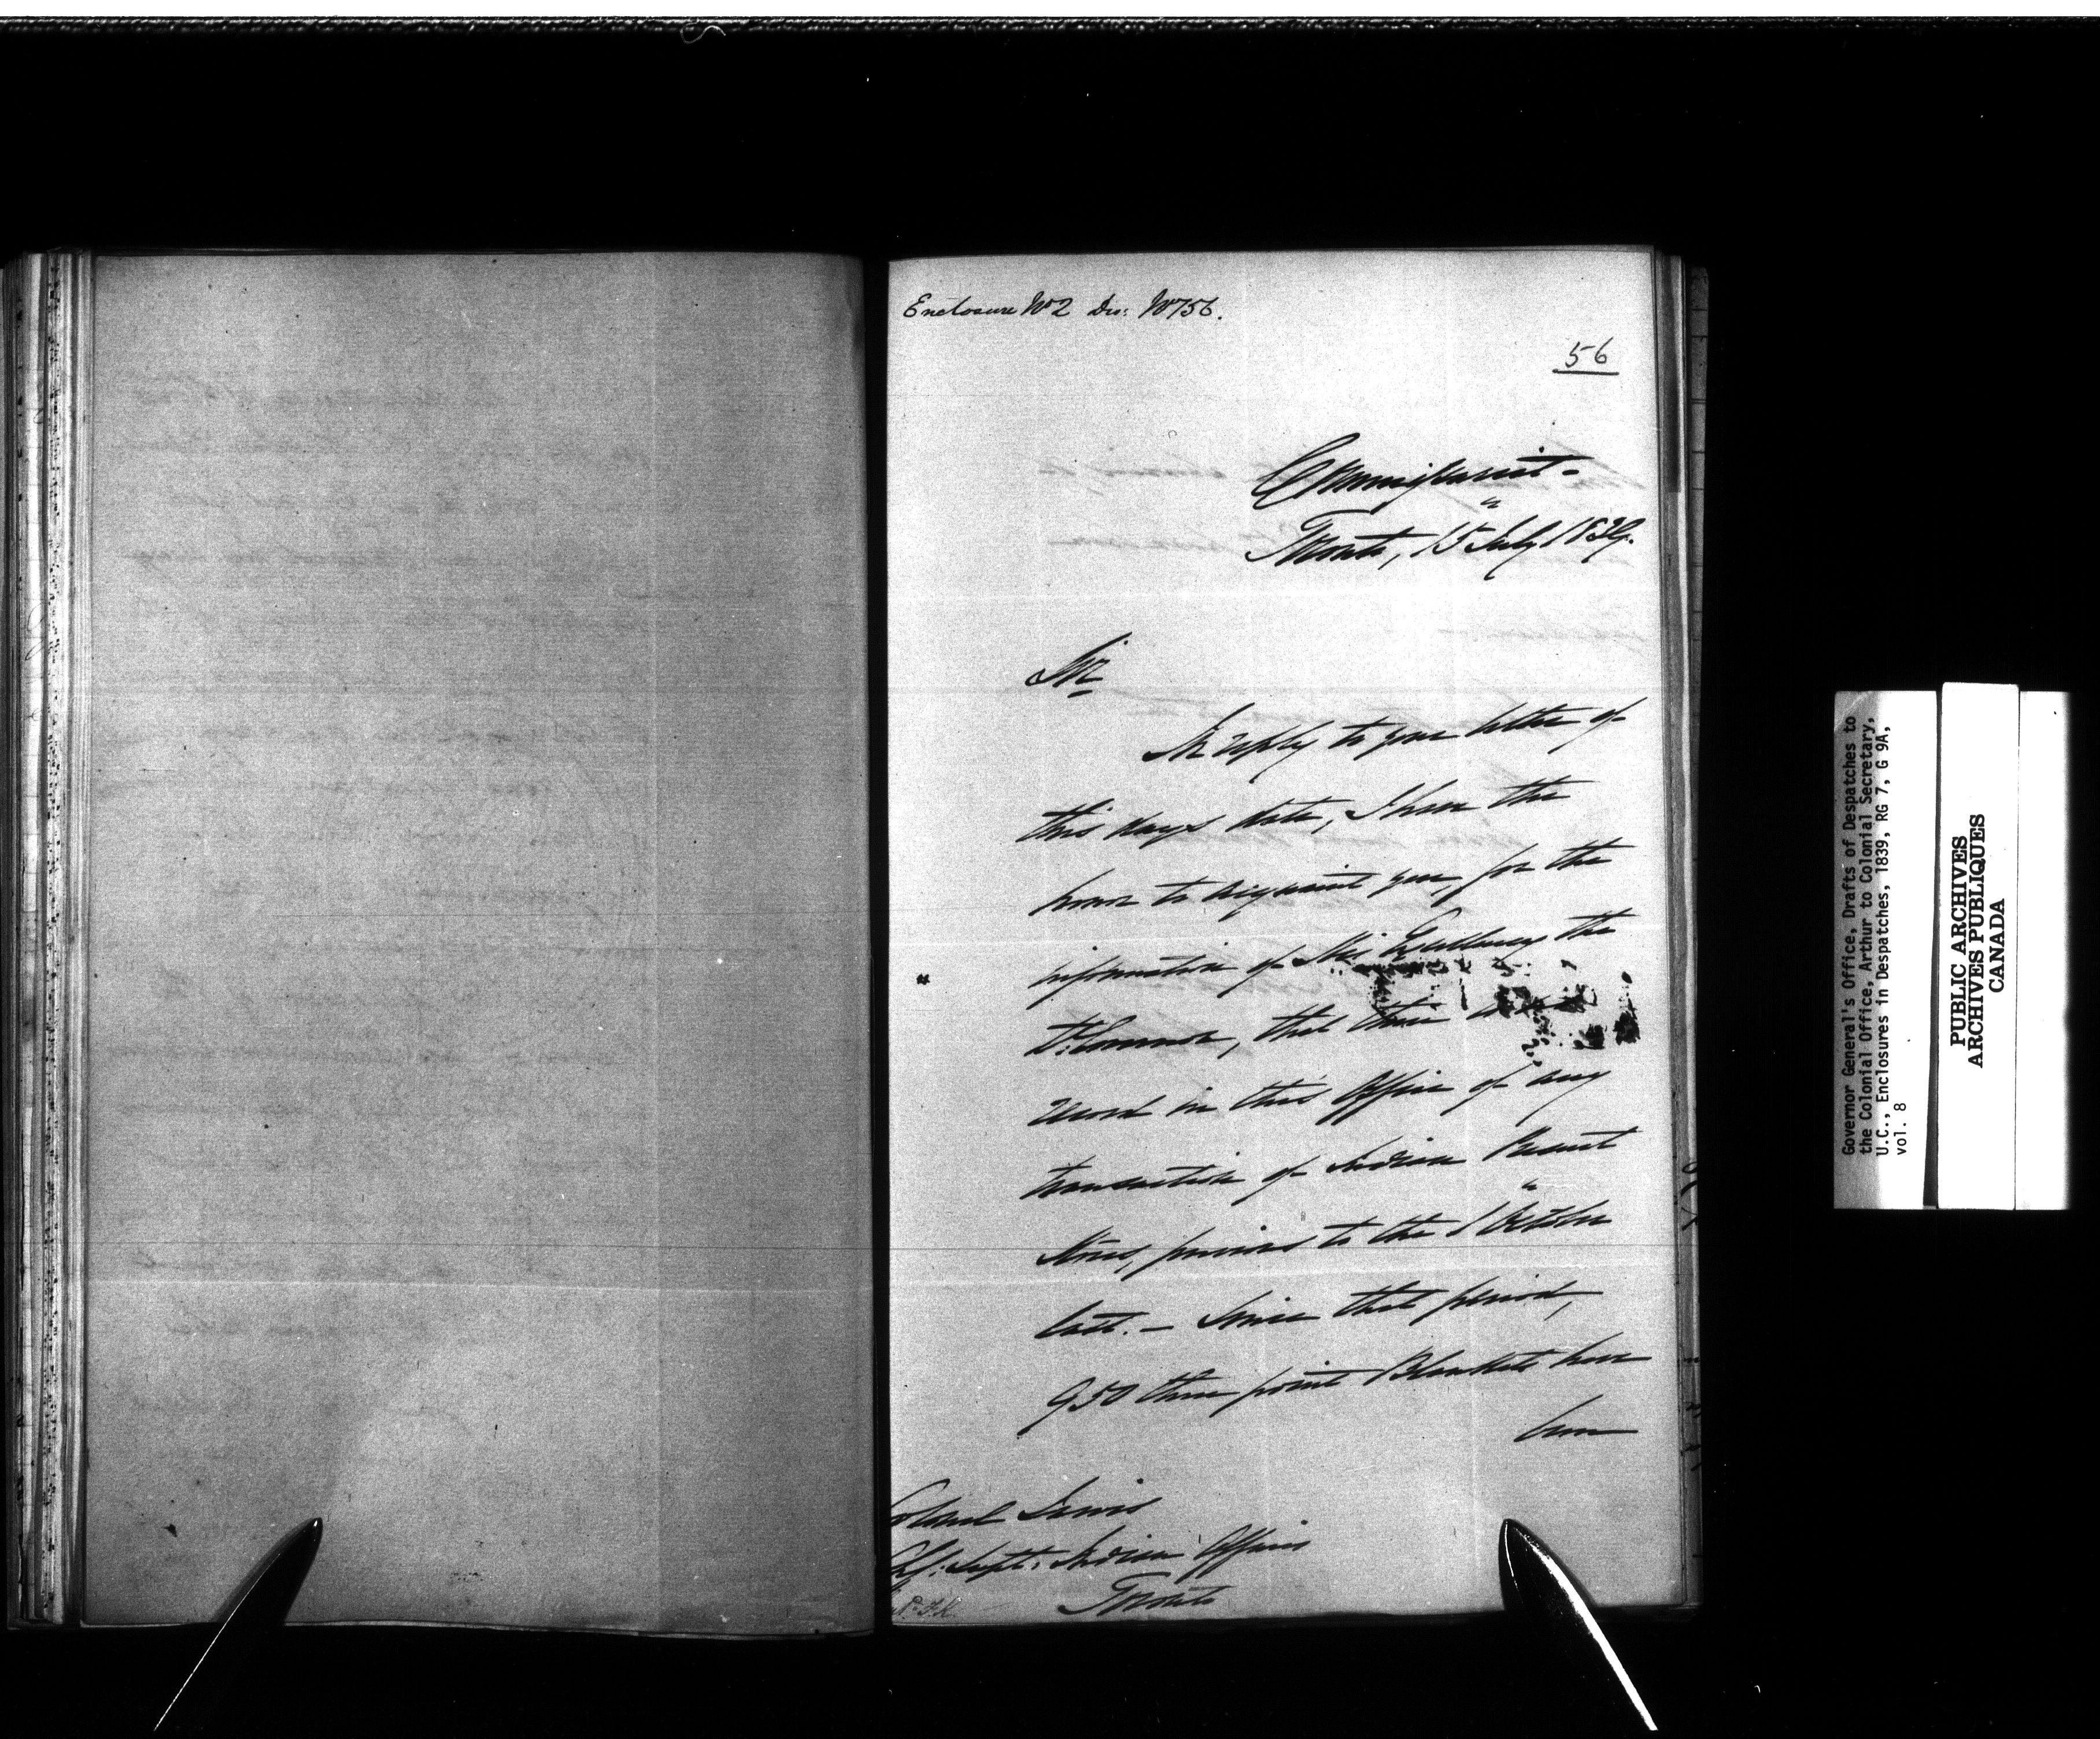 Enclosure No 2 Des: No 156.
56
Commissariat-
Toronto, 15 July 1839.
Sir
In reply to your letter of
this days date, I have the
honor to acquaint you, for the
information of His Excellency the
Lt. Governor, that there
record in this Office of any
transaction of Indian Present
Stores, previous to the 1 October
last. — Since that period,
950 three point Blankets have
been
Colonel Jarvis
Chf: Supt: Indian Affairs
Toronto
Governor General's Office, Drafts of Despatches to
the Colonial Office, Arthur to Colonial Secretary,
U.C., Enclosures in Despatches, 1839, RG 7, G 9A,
vol. 8
PUBLIC ARCHIVES
ARCHIVES PUBLIQUES
CANADA